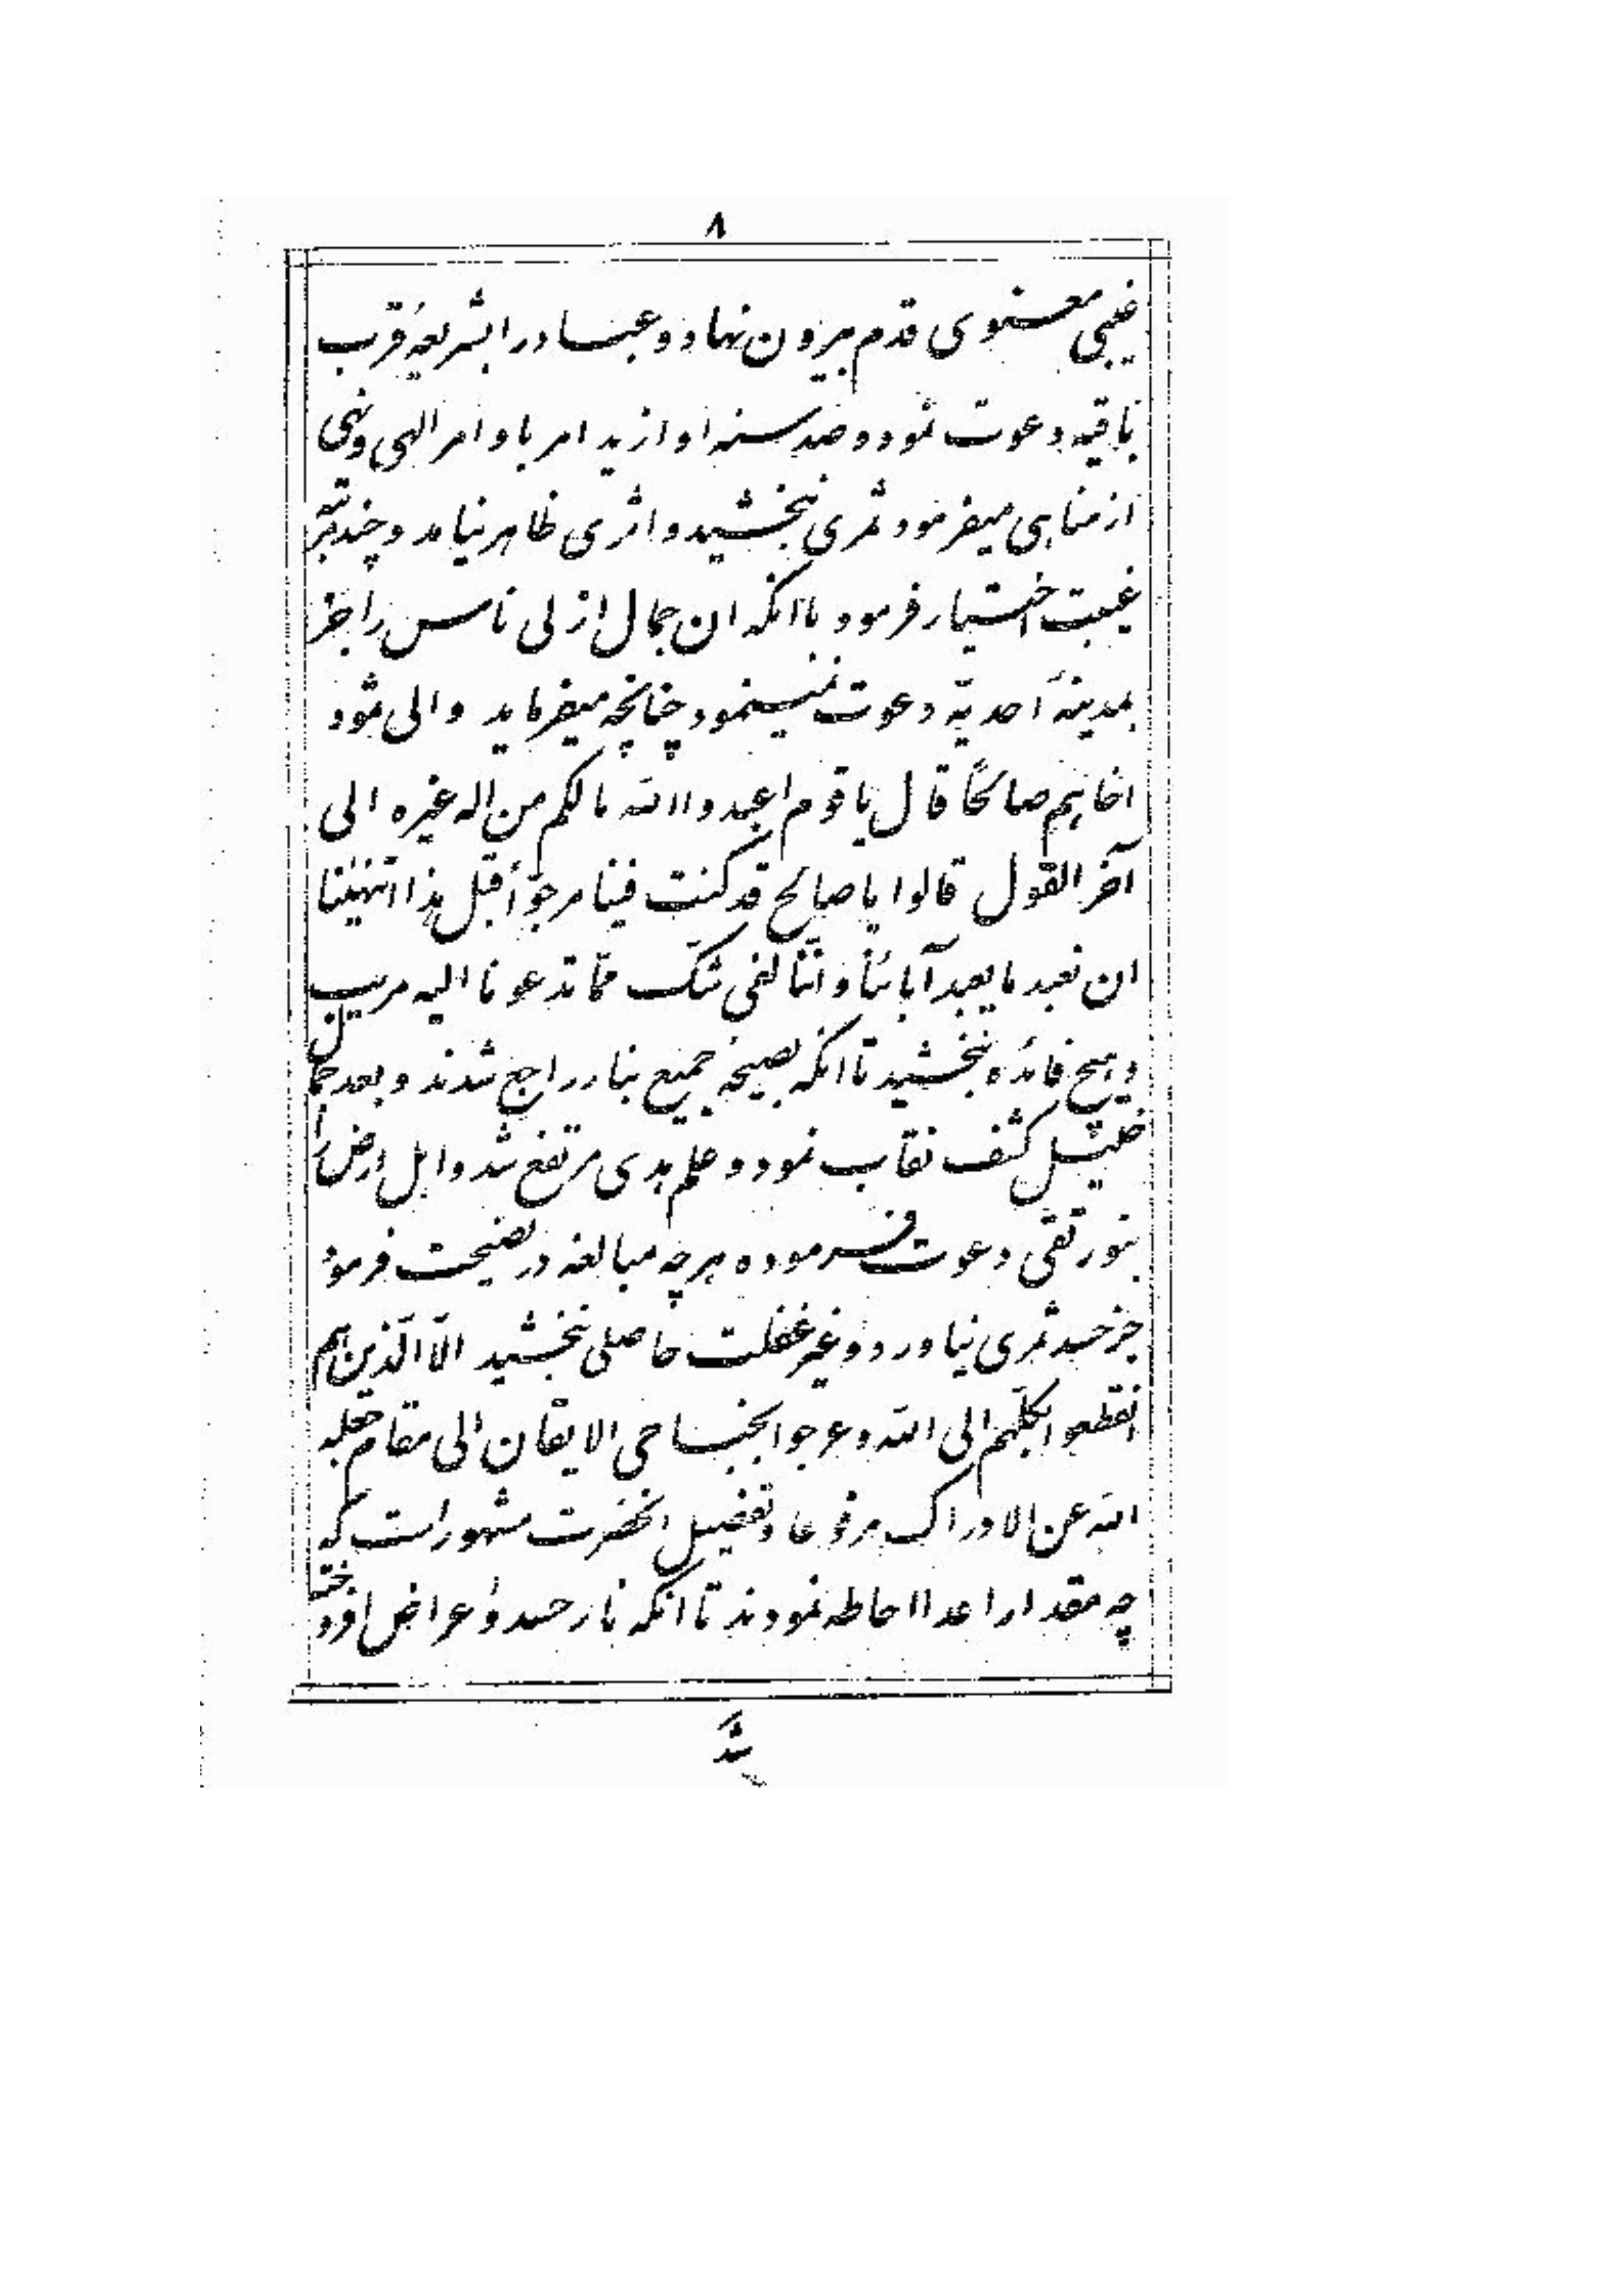 ۸
غیبی معنوی قدم بیرون نهاد و عباد را بشریعهٔ قرب
باقیه دعوت نمود و صد سنه او ازید امر باوامر الهی و نهی
از مناهی میفرمود ثمری نبخشید و اثری ظاهر نیامد و چند مرتبه
غیبت اختیار فرمود با انکه ان جمال ازلی ناس را جز
بمدینهٔ احدیّه دعوت نمینمود چنانچه میفرماید و الی ثمود
اخاهم صالحاً قال یا قوم اعبدوا الله مالکم من اله غیره الی
آخر القول قالوا یا صالح قد کنت فینا مرجوّاً قبل هذا اتنهینا
ان نعبد ما یعبد آبائنا و انّنا لفی شک ممّا تدعونا الیه مریب
و هیچ فائده نبخشید تا انکه بصیحهٔ جمیع بنار راجع شدند و بعد جمال
خلیل کشف نقاب نمود و علم هدی مرتفع شد و اهل ارض را
بنور تقی دعوت فرموده هرچه مبالغه در نصیحت فرمود
جز حسد ثمری نیاورد و غیر غفلت حاصلی نبخشید الّا الّذین هم
انقطعوا بکلّهم الی الله و عرجوا بجناحی الایقان الی مقام جعله
الله عن الادراک مرفوعا و تفضیل انحضرت مشهور است که
چه مقدار اعدا احاطه نمودند تا انکه نار حسد و اعراض افروخته
شد